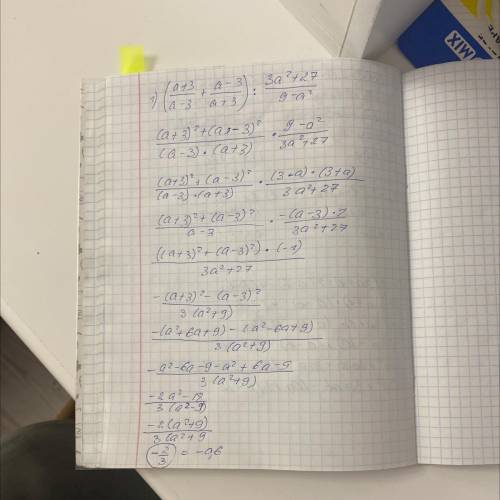 1) ((a+3)/(a-3) + (a-3)/(a+3)) : (3a²+27)/(9-a²)
((a+3)²+(a-3)²)/((a-3)·(a+3)) · (9-a²)/(3a²+27)
((a+3)²+(a-3)²)/((a-3)·(a+3)) · ((3-a)·(3+a))/(3a²+27)
((a+3)²+(a-3)²)/(a-3) · (-(a-3)·1)/(3a²+27)
(((a+3)²+(a-3)²)·(-1))/(3a²+27)
(-(a+3)²-(a-3)²)/(3(a²+9))
(-(a²+6a+9)-(a²-6a+9))/(3(a²+9))
(-a²-6a-9-a²+6a-9)/(3(a²+9))
(-2a²-18)/(3(a²-9))
(-2(a²+9))/(3(a²+9
-2/3 = -0,6
MIX